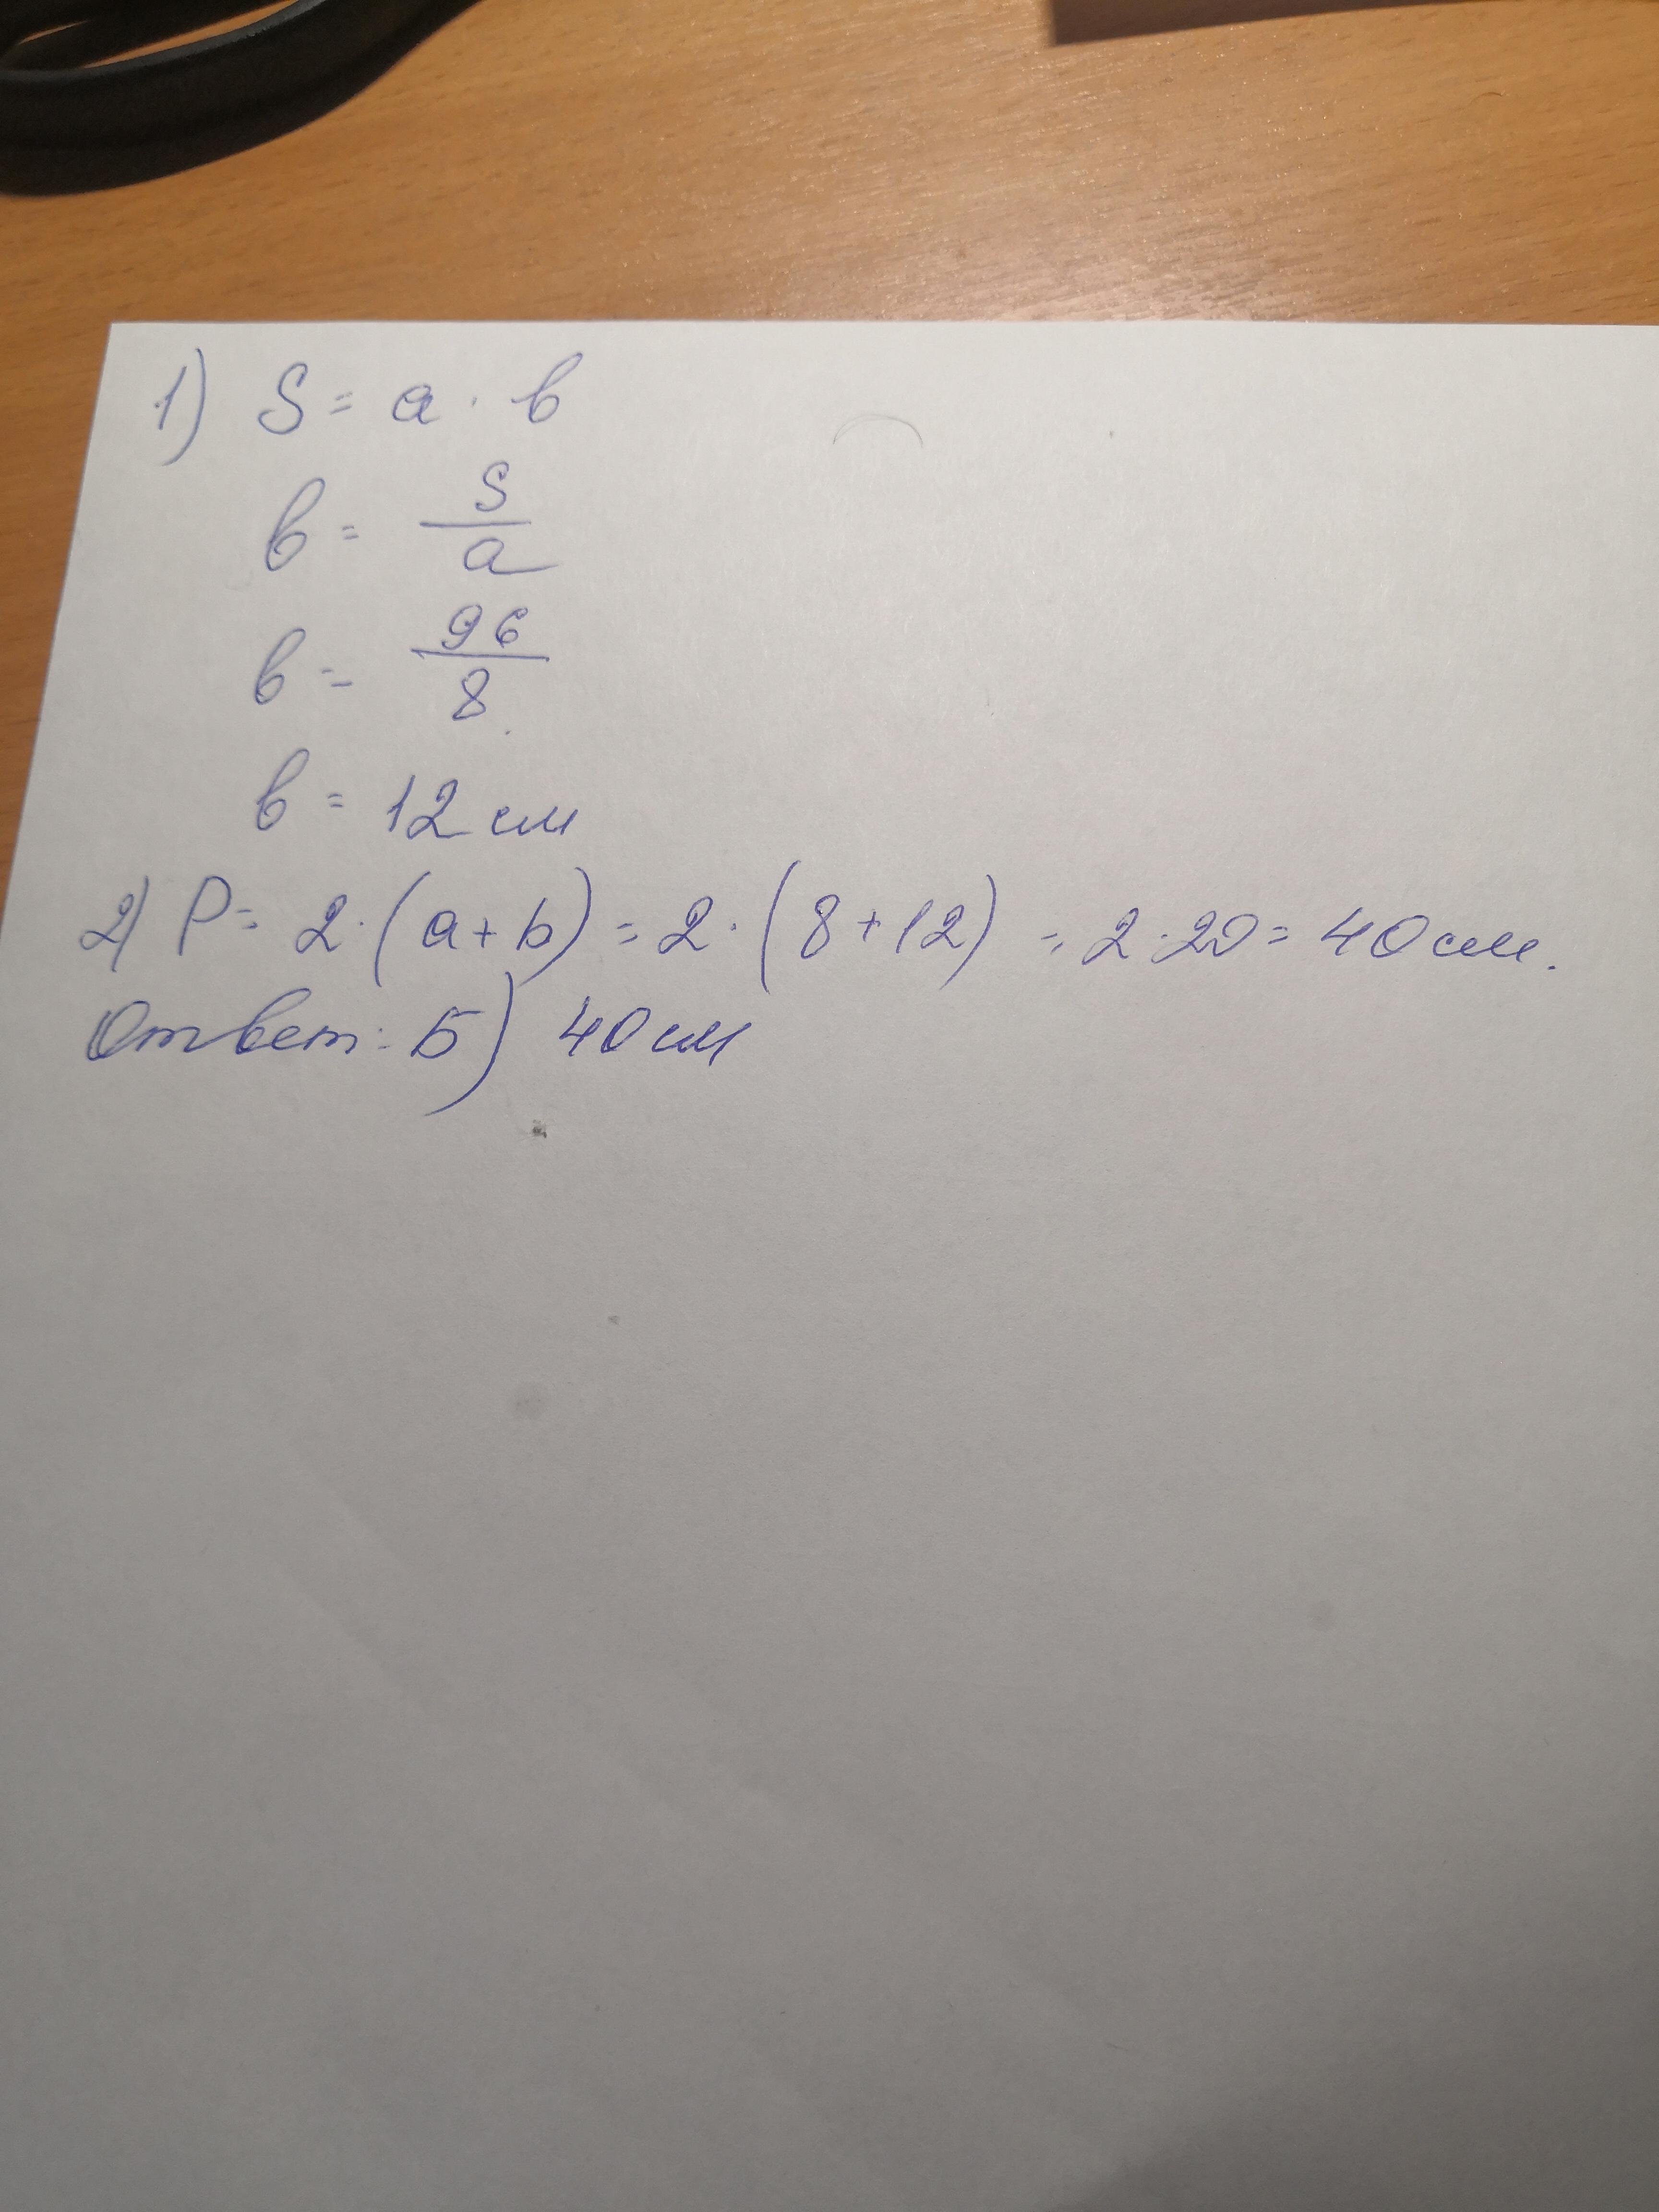 1) S = a · b
b = S/a
b = 96/8
b = 12 см
2) P = 2 · (a + b) = 2 · (8 + 12) = 2 · 20 = 40 см.
Ответ: Б) 40 см